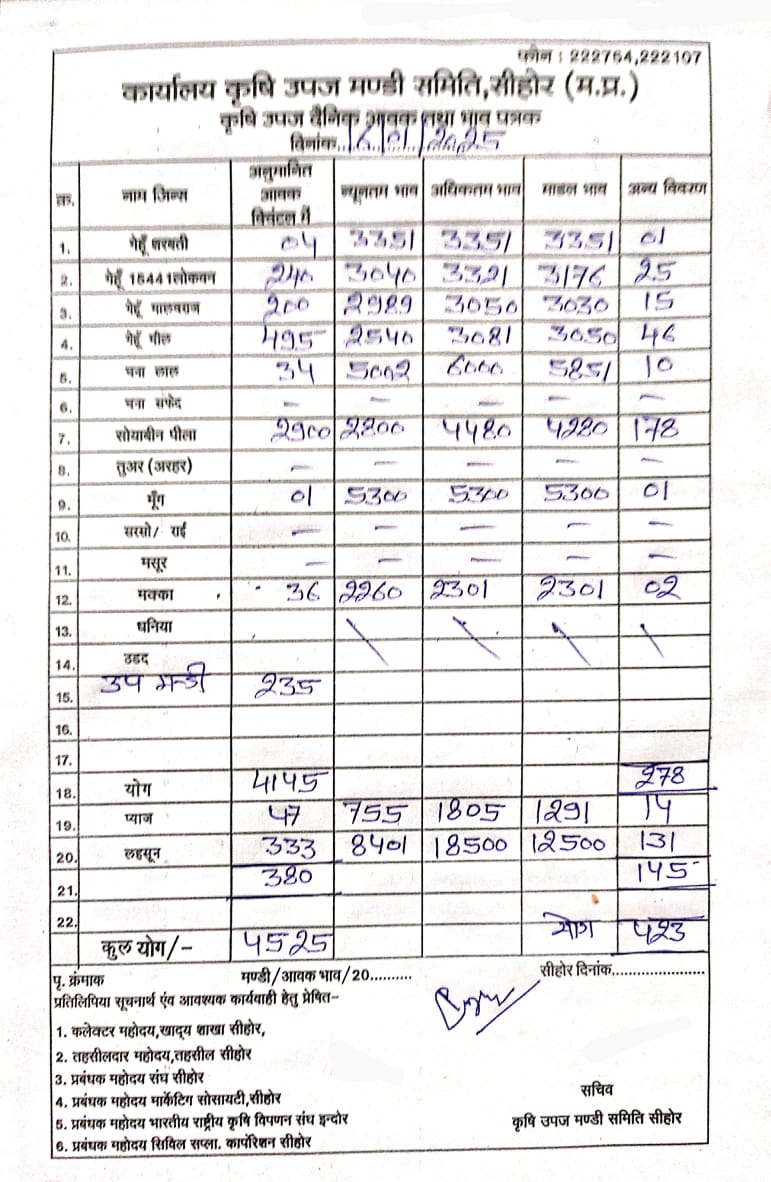 फोन : 222764,222107
कार्यालय कृषि उपज मण्डी समिति,सीहोर (म.प्र.)
कृषि उपज दैनिक आवक तथा भाव पत्रक
दिनांक..16/01/2025
क्र. नाम जिन्स अनुमानित आवक क्विंटल में न्यूनतम भाव अधिकतम भाव माडल भाव अन्य विवरण
1. गेहूँ शरबती 04 3351 3351 3351 01
2. गेहूँ 15441लोकवन 240 3040 3321 3176 25
3. गेहूँ मालवराज 200 2989 3050 3030 15
4. गेहूँ मील 495 2540 3081 3050 46
5. चना लाल 34 5002 6000 5851 10
6. चना सफेद – – – – –
7. सोयाबीन पीला 2900 2800 4480 4280 178
8. तुअर (अरहर) – – – – –
9. मूँग 01 5300 5300 5300 01
10. सरसो/ राई – – – – –
11. मसूर – – – – –
12. मक्का 36 2260 2301 2301 02
13. धनिया \ \ \ \
14. उडद
15. उप मन्डी 235
16.
17.
18. योग 4145 278
19. प्याज 47 755 1805 1291 14
20. लहसून 333 8401 18500 12500 131
21. 380 145
22.
कुल योग/- 4525 योग 423
पृ. क्रंमाक मण्डी/आवक भाव/20.......... सीहोर दिनांक.......................
प्रतिलिपिया सूचनार्थ एंव आवश्यक कार्यवाही हेतु प्रेषित–
1. कलेक्टर महोदय,खाद्य शाखा सीहोर,
2. तहसीलदार महोदय,तहसील सीहोर
3. प्रबंधक महोदय संघ सीहोर
4. प्रबंधक महोदय मार्केटिंग सोसायटी,सीहोर
5. प्रबंधक महोदय भारतीय राष्ट्रीय कृषि विपणन संघ इन्दोर
6. प्रबंधक महोदय सिविल सप्ला. कार्पोरेशन सीहोर
सचिव
कृषि उपज मण्डी समिति सीहोर